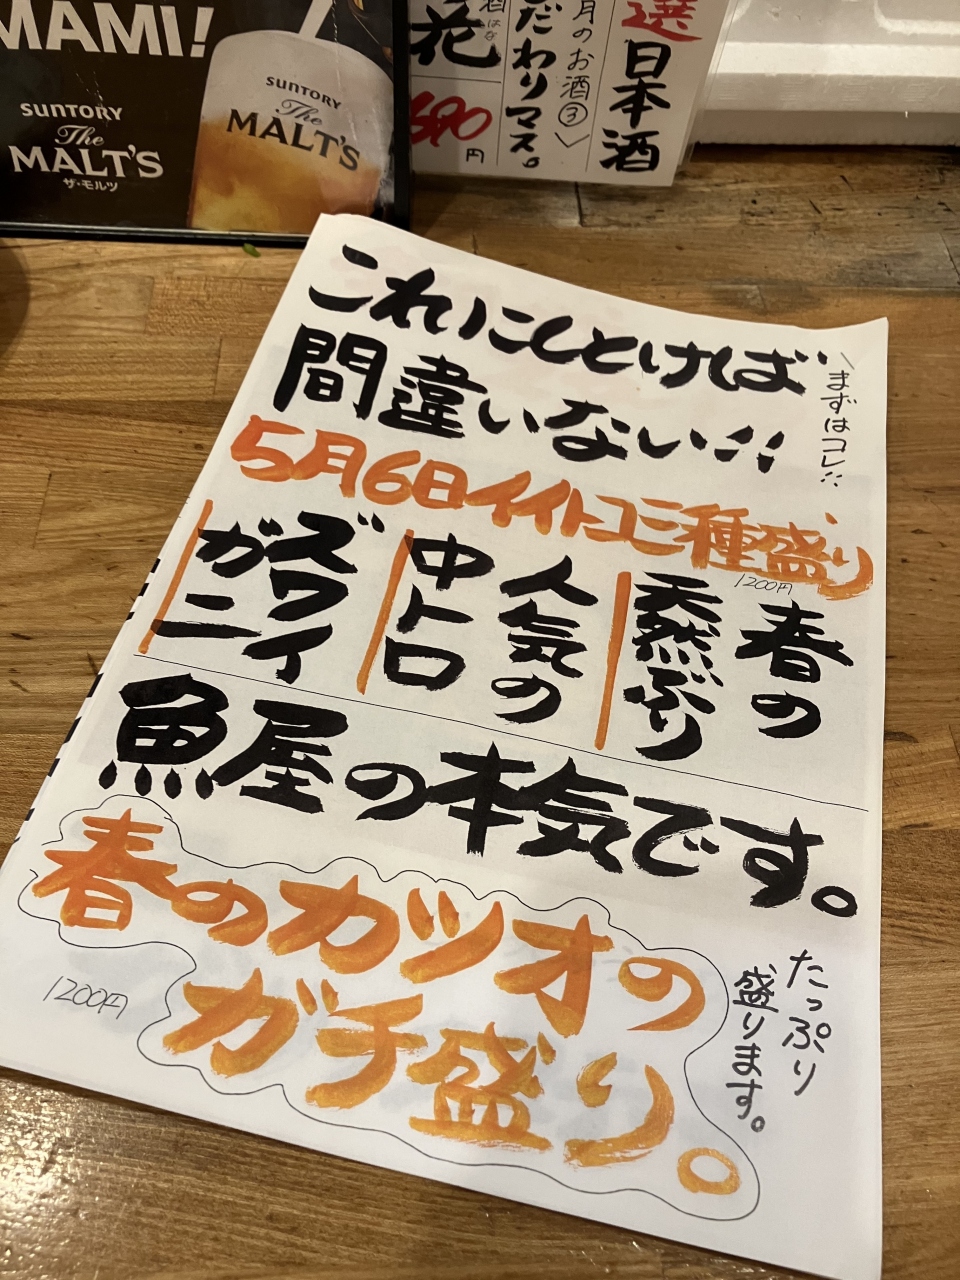 MAMI!
SUNTORY
The
MALT'S
ザ・モルツ
SUNTORY
The
MALT'S
選
日本酒
月のお酒③
だわりマス。
花
690
円
これにしとけば
間違いない!!
まずはコレ!!
5月6日イイトコ三種盛り
1200円
春の
天然ぶり
人気の
中トロ
ズワイ
ガニ
魚屋の本気です。
春のカツオの
ガチ盛り。
1200円
たっぷり
盛ります。